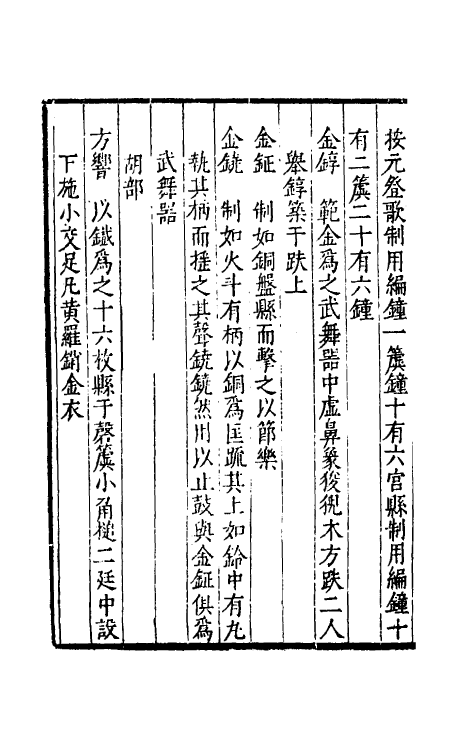 按元登歌制用編鐘一簴鐘十有六宮縣制用編鐘十
有二簴二十有六鐘
金錞　範金爲之武舞器中虛鼻象狻猊木方趺二人
擧錞築于趺上
金鉦　制如銅盤縣而擊之以節樂
金鐃　制如火斗有柄以銅爲匡疏其上如鈴中有丸
執其柄而搖之其聲鐃鐃然用以止鼓與金鉦俱爲
武舞器
胡部
方響　以鐵爲之十六枚縣于磬簴小角槌二廷中設
下施小交足几黄羅銷金衣